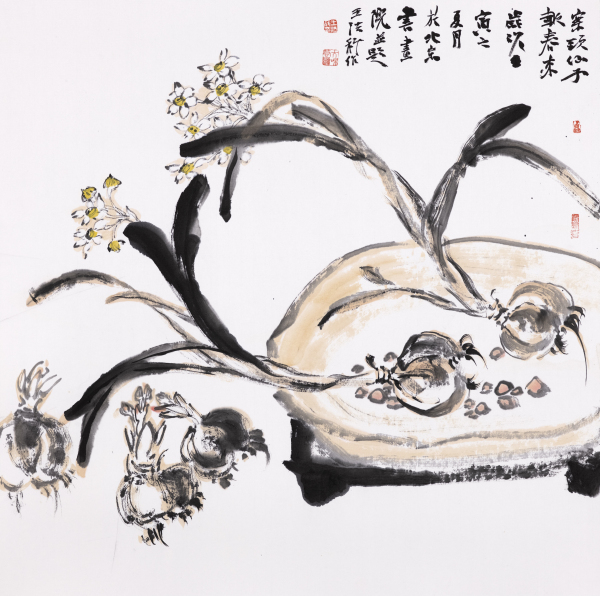 案頭仙子
報春来
歲次壬
寅之
夏月
於北京
書畫
院並題
王法衍作